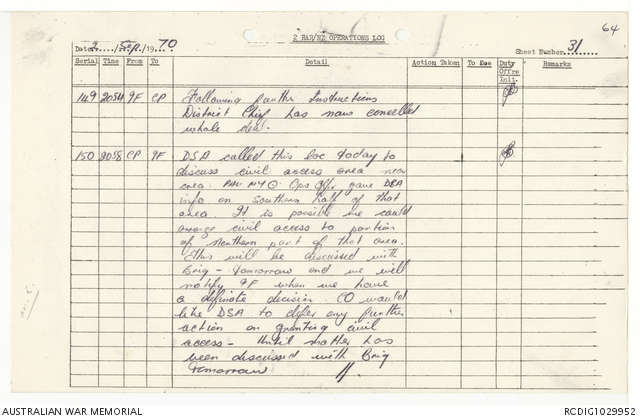 64
2 RAR/NZ OPERATIONS LOG
Date 2 / Sep / 19 70
Sheet Number 31
Serial Time From To Detail Action Taken To Due Duty Offrs Init. Remarks
149 2054 9F CP Following further Instructions
District Chief has now cancelled
whole deal.
150 2058 CP 9F DSA called this loc today to
discuss civil access area near
area. Ops Offr. gave DSA
info on Southern half of that
area. It is possible we could
arrange civil access to portion
of Northern part of that area.
This will be discussed with
Brig - Tomorrow and we will
notify 9F when we have
a definate decision. CO would
like DSA to defer any further
action on granting civil
access - Until matter has
been discussed with Brig
Tomorrow //.
AUSTRALIAN WAR MEMORIAL
RCDIG1029952